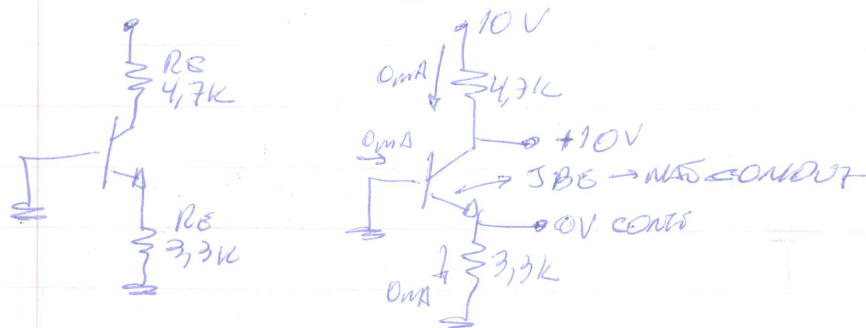 RE
4,7K
RE
3,3K
10V
0mA
4,7K
+10V
0mA
JBE → NÃO CONDUZ
0V
3,3K
0mA